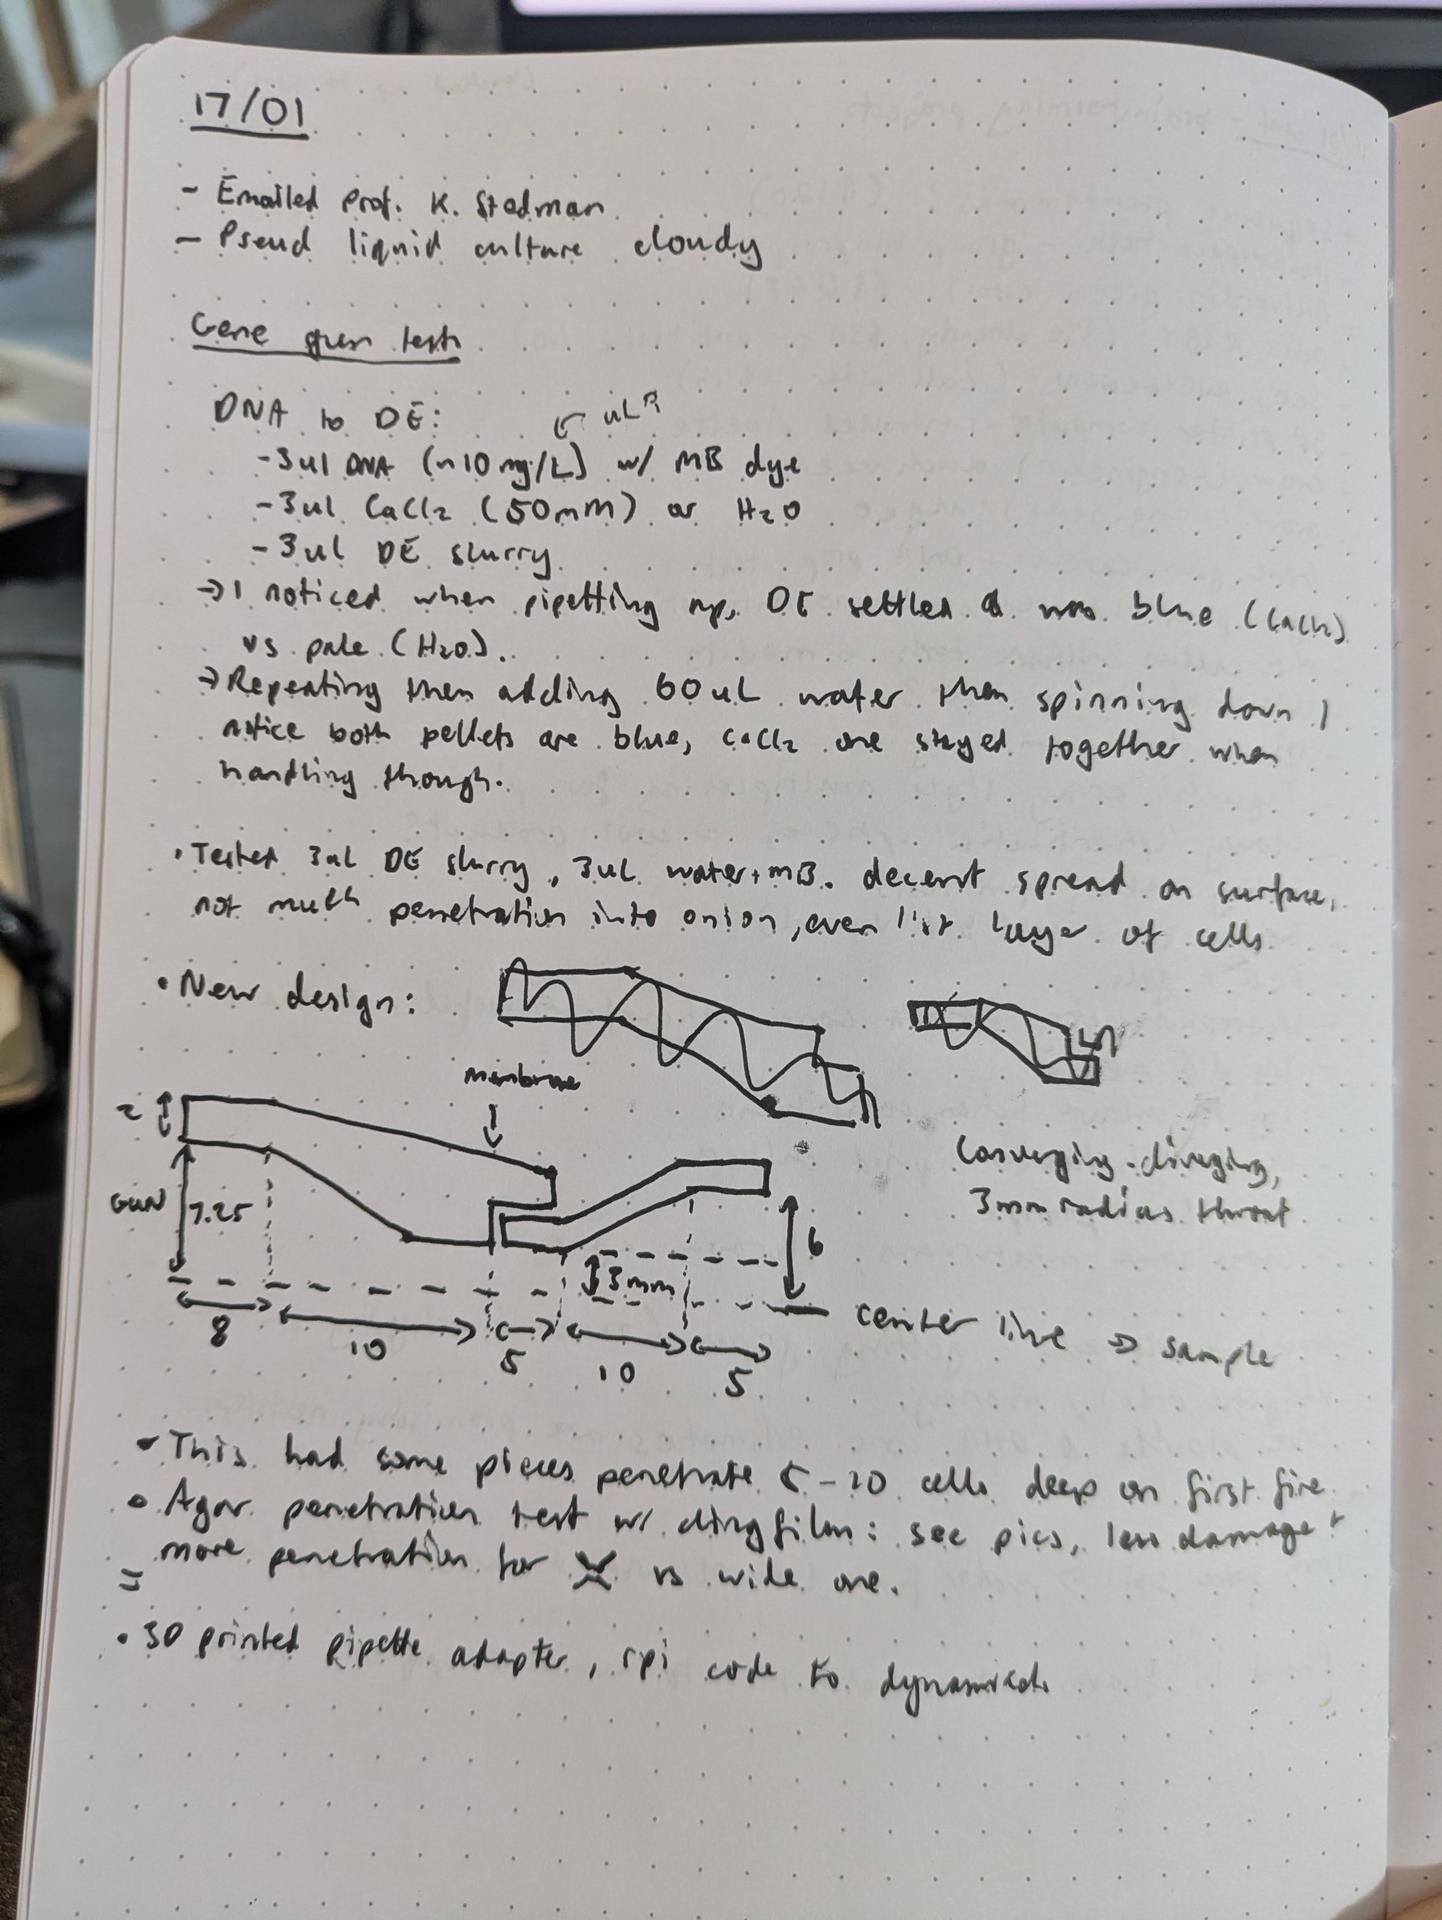 17/01
- Emailed Prof. K. Stedman
- Pseud liquid culture cloudy
Gene gun tests
DNA to DE:
uL?
- 3ul DNA (~10 ng/L) w/ MB dye
- 3ul CaCl2 (50mM) or H2O
- 3ul DE slurry
→ I noticed when pipetting up, DE settled & was blue (CaCl2)
vs pale (H2O).
→ Repeating then adding 60uL water then spinning down I
notice both pellets are blue, CaCl2 one stayed together when
handling though.
• Tested 3uL DE slurry, 3uL water+MB. decent spread on surface,
not much penetration into onion, even 1st layer of cells
• New design:
membrane
2
GUN 7.25
Converging-diverging,
3mm radius throat
6
3mm
center line → sample
8 10 5 10 5
- This had some pieces penetrate 5-10 cells deep on first fire
• Agar penetration test w/ clingfilm: see pics, less damage +
more penetration for vs wide one.
=
• 3D printed pipette adapter, rpi code to